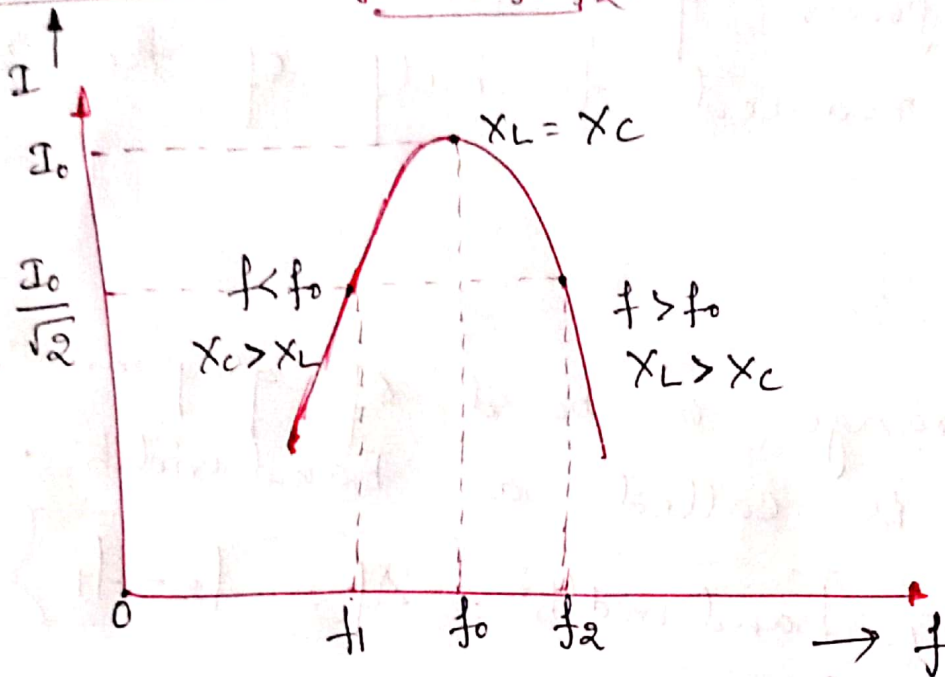 I
I₀
X_L = X_C
I₀/√2
f < f₀
X_C > X_L
f > f₀
X_L > X_C
0
f₁
f₀
f₂
→ f